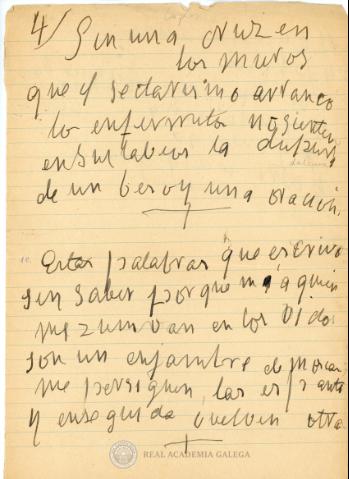 4/ Sin una cruz en
los muros
que el sectarismo arranco
lo enfermito no sienten
en sus labios la
de un beso y una oración.
Estas palabras que escrivo
sin saber porque ni a quien
me zumvan en los oidos
son un enjambre de moscas
me persiguen, las espanto
y enseguida vuelven otra
REAL ACADEMIA GALEGA